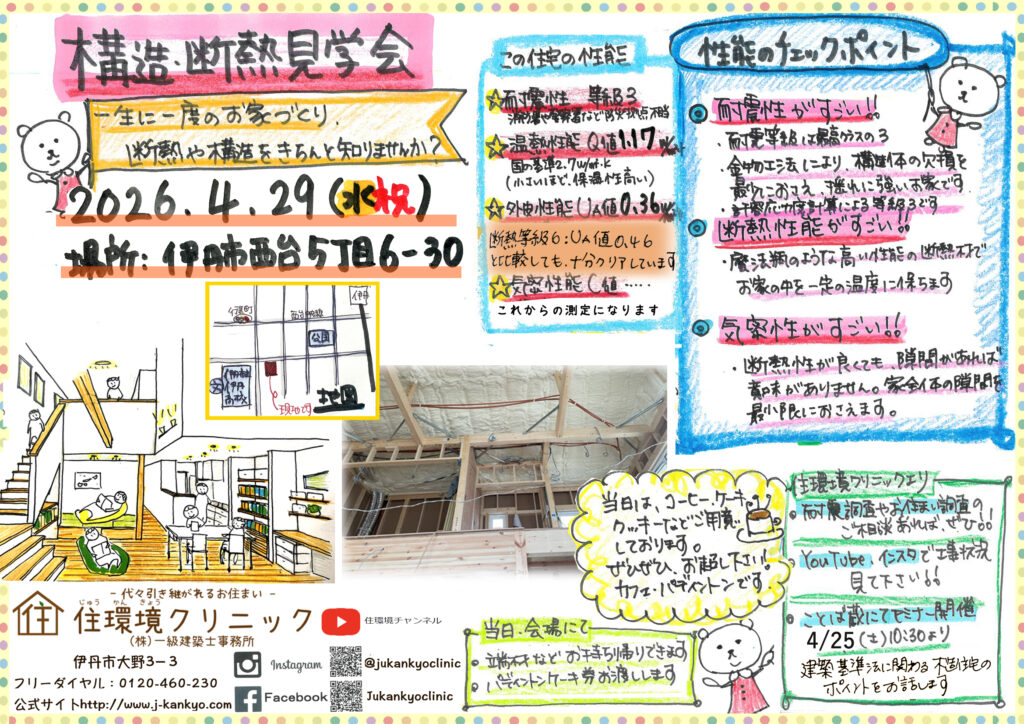 構造・断熱見学会
一生に一度のお家づくり、
断熱や構造をきちんと知りませんか?
2026.4.29(水祝)
場所:伊丹市西台5丁目6-30
伊丹
公園
現地です
地図
この住宅の性能
☆耐震性 等級3
☆温熱性能Q値1.17
国の基準2.7W/㎡・K
(小さいほど、保温性高い)
☆外皮性能UA値0.36
断熱等級6:UA値0.46
と比較しても、十分クリアしています
☆気密性能C値‥‥‥
これからの測定になります
性能のチェックポイント
◎耐震性がすごい!!
・耐震等級は最高クラスの3
・金物工法により、構造体の欠損を
最小におさえ、揺れに強いお家です
・許容応力度計算による等級3です
◎断熱性能がすごい!!
・魔法瓶のような高い性能の断熱材で
お家の中を一定の温度に保ちます
◎気密性がすごい!!
・断熱性が良くても、隙間があれば
意味がありません。家全体の隙間を
最小限におさえます。
当日は、コーヒー、ケーキ、
クッキーなどご用意
しております。
ぜひぜひ、お越し下さい!
カフェ・パディントンです
住環境クリニックより
・耐震調査やお住まい調査の
ご相談あれば、ぜひ!!
・YouTube、インスタで工事状況
見て下さい!!
・ことば蔵にてセミナー開催
4/25(土)10:30より
建築基準法に関わる木造住宅の
ポイントをお話します
当日、会場にて
・端材などお持ち帰りできます
・パディントンケーキ券お渡しします
- 代々引き継がれるお住まい -
住
じゅう かん きょう
住環境クリニック
(株)一級建築士事務所
伊丹市大野3-3
フリーダイヤル:0120-460-230
公式サイトhttp://www.j-kankyo.com
住環境チャンネル
Instagram
@jukankyoclinic
Facebook
Jukankyoclinic